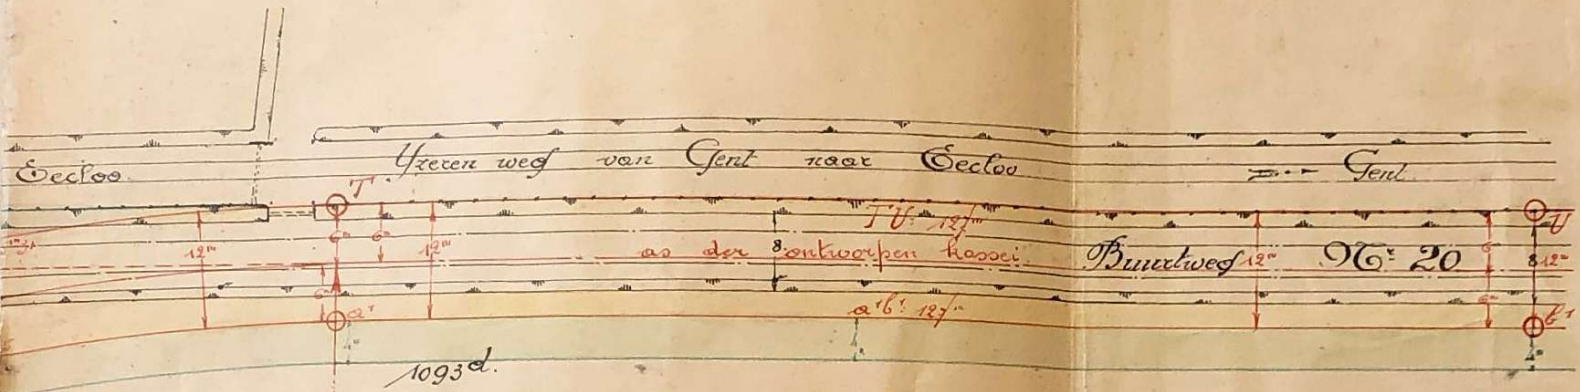 Eecloo. Yzeren weg van Gent naar Eecloo Gent
T
T U: 127m U
12m 6m 6m 12m as der 8. ontworpen kassei Buurtweg 12m Nr: 20 6 8 12m
6m 6m
a' a'b': 127m b'
1093d.